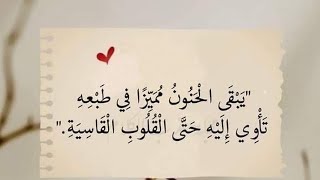 "يَبْقَى الْحَنُونُ مُمَيَّزًا فِي طَبْعِهِ
تَأْوِي إِلَيْهِ حَتَّى الْقُلُوبِ الْقَاسِيَةِ."